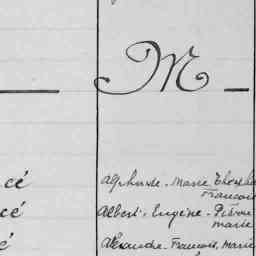 M
cé Alphonse - Marie Théophi
François
cé Albert - Eugène - Pierre
Marie
é Alexandre - François, Marie